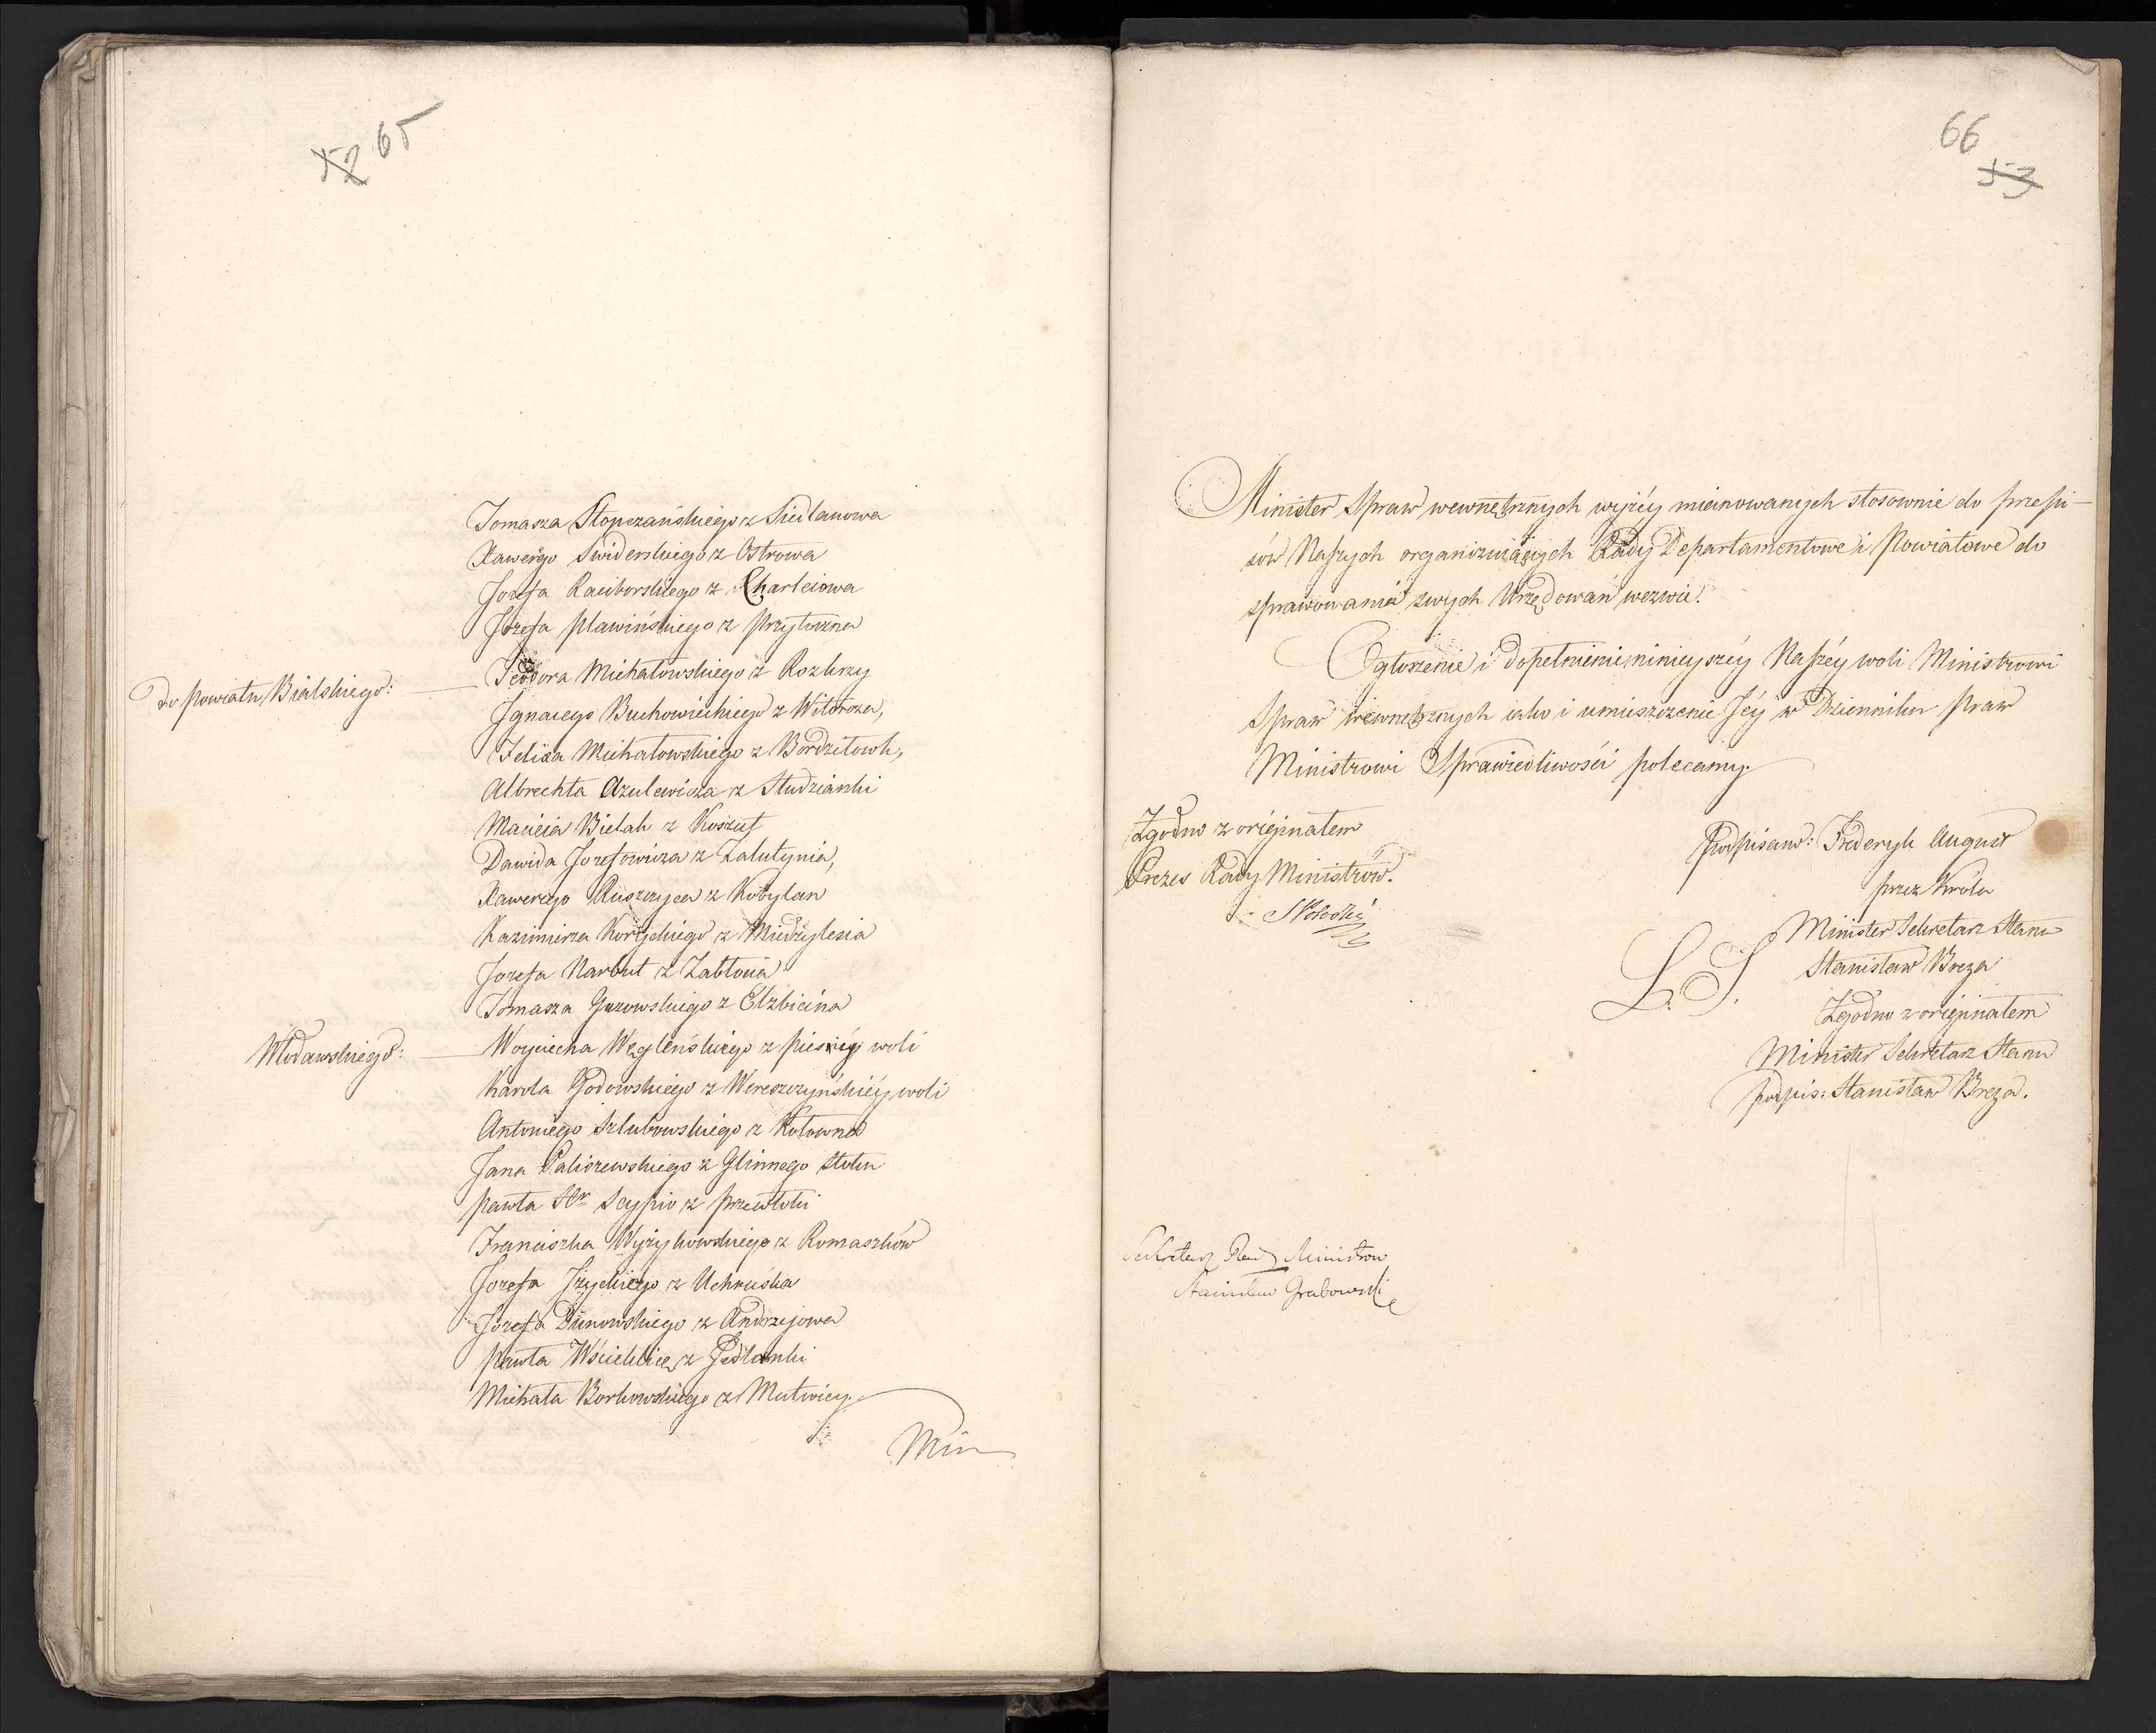 52 65
Tomasza Stopczańskiego z Siedlanowa
Xawerego Swiderskiego z Ostrowa
Jozefa Raciborskiego z Charleiowa
Jozefa Pławińskiego z Przytoczna
Do Powiatu Bialskiego: Teodora Michałowskiego z Rozkrzy
Jgnacego Buchowieckiego z Witoroza,
Felixa Michałowskiego z Bordziłowk,
Albrechta Azulewicza z Studzianki
Macieia Bielak z Koszuł
Dawida Jozefowicza z Zalutynia,
Xawerego Ruszczyca z Kobylan
Kazimierza Koryckiego z Międzylesia
Jozefa Narbut z Zabłocia
Tomasza Guzowskiego z Elzbiecina
Włodawskiego: Woyciecha Węgleńskiego z Piesiéy woli
Karola Godowskiego z Wereszczyńskiéy woli
Antoniego Szlubowskiego z Kolowna
Jana Paliszewskiego z Glinnego Stoku
Pawła Hr Scypio z Przewłoki
Franciszka Wyżykowskiego z Romaszków
Jozefa Jżyckiego z Uchnuśka
Jozefa Dunowskiego z Andrzejowa
Pawła Wścieklicę z Jedlanki
Michała Borkowskiego z Mutwicy.
Min
66
53
Minister Spraw wewnętrznych wyżéy mianowanych stosownie do przepi-
sów Naszych organizuiących Rady Departamentowe i Powiatowe do
sprawowania swych Urzędowań wezwie.
Ogłoszenie i dopełnienie ninieyszéy Naszéy woli Ministrowi
Spraw wewnętrznych iako i umieszczenie Jéy w Dzienniku Praw
Ministrowi Sprawiedliwości polecamy.
Zgodno z originałem
Prezes Rady Ministrów.
S Potocki
Podpisano: Frederyk August
przez Króla
Minister Sekretarz Stanu
L. S. Stanisław Breza
Zgodno z originałem
Minister Sekretarz Stanu
podpis: Stanisław Breza.
Sekretarz Rady Ministrow
Stanisław Grabowski